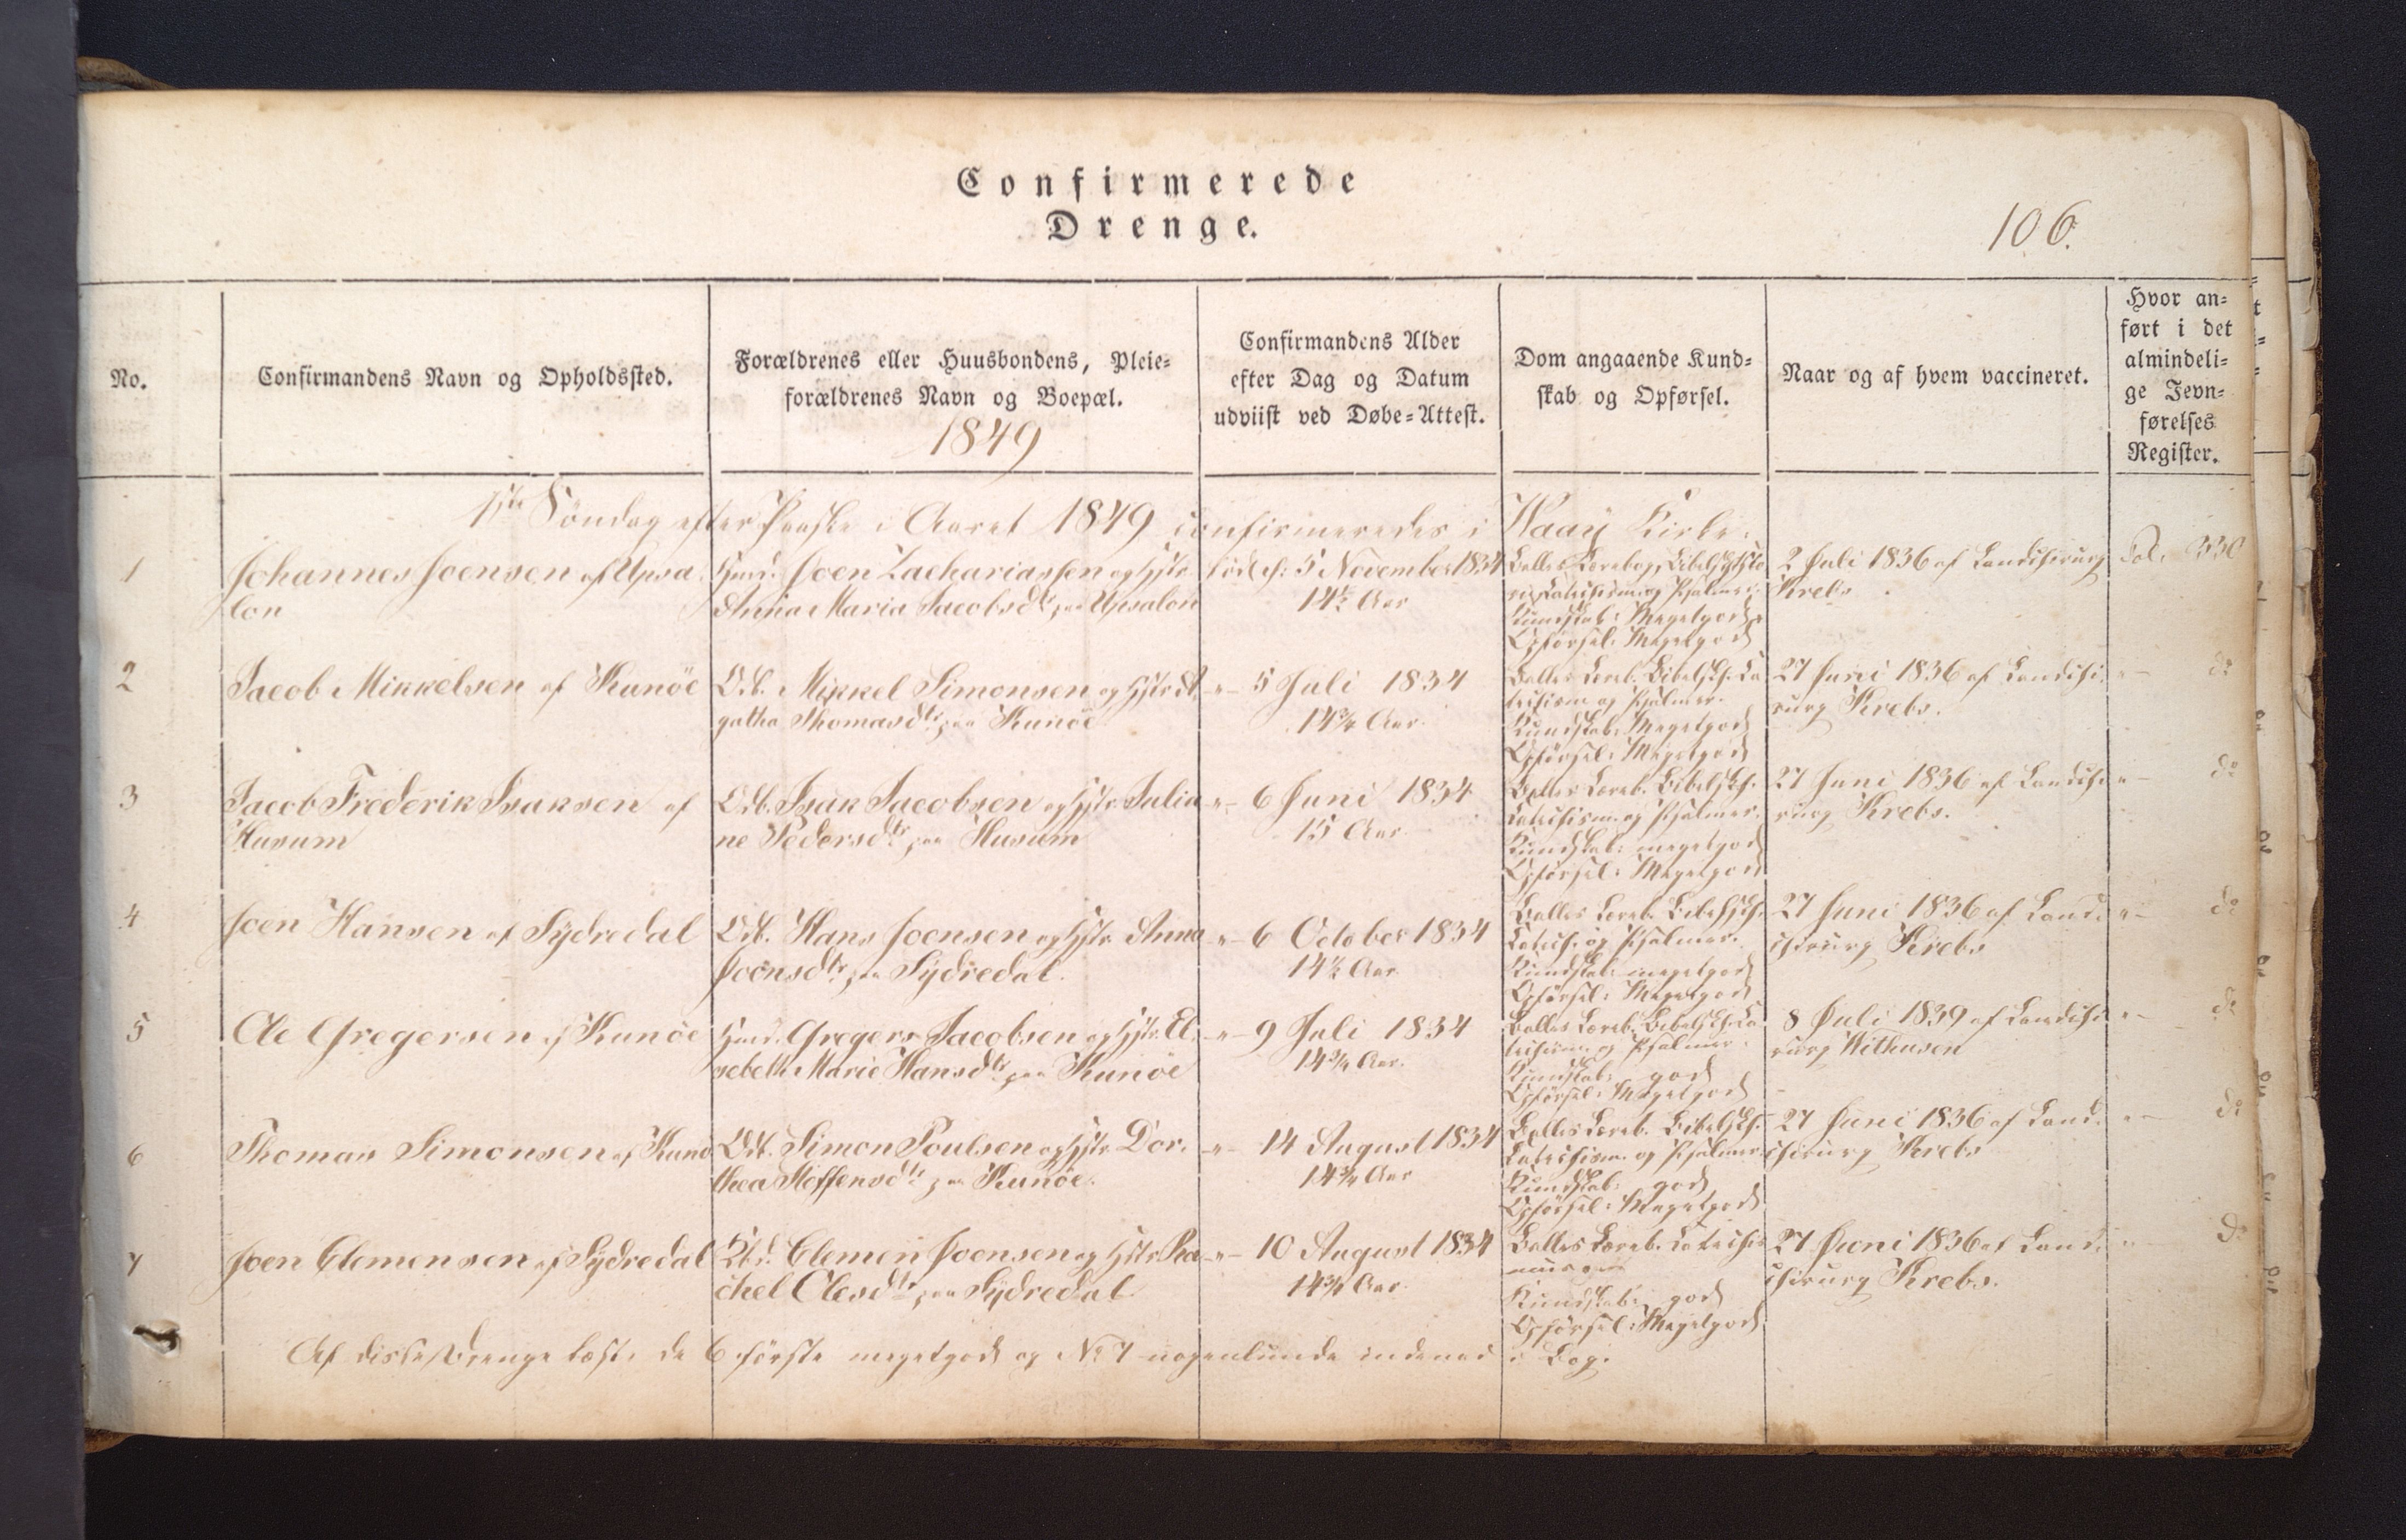 Confirmerede
Drenge.
106.
No.
Confirmandens Navn og Opholdssted.
Forældrenes eller Huusbondens, Pleie=
forældrenes Navn og Boepæl.
1849
Confirmandens Alder
efter Dag og Datum
udviist ved Døbe=Attest.
Dom angaaende Kund=
skab og Opførsel.
Naar og af hvem vaccineret.
Hvor an=
ført i det
almindeli=
ge Jevn=
førelses
Register.
1ste Söndag efter Paaske i Aaret 1849 confirmeredes i Waaÿ Kirke:
1
Johannes Joensen af Upsa
lon
Huusm. Joen Zachariassen og Hstr
Anna Maria Jacobsdtr paa Upsalon
född d. 5 November 1834
14½ Aar
Balles Lærebog, Bibelhisto
rie, Catechism. og Psalmer.
Kundskab: Megetgod
Opførsel: Megetgod
2 Juli 1836 af Landchirurg
Krebs
Fol. 330
2
Jacob Mikkelsen af Kunöe
Odb. Mikkel Simonsen og Hstr A
gatha Thomasdtr paa Kunöe
-"- 5 Juli 1834
14¾ Aar
Balles Læreb. Bibelh. Ca
techism. og Psalmer.
Kundskab: Megetgod
Opførsel: Megetgod
27 Juni 1836 af Landchi
rurg Krebs.
"- do
3
Jacob Frederik Isaksen af
Husum
Odb. Isak Jacobsen og Hstr Julia
ne Pedersdtr paa Husum
-"- 6 Juni 1834
15 Aar
Balles Læreb. Bibelh.
Catechism. og Psalmer.
Kundskab: megetgod
Opførsel: Megetgod
27 Juni 1836 af Landchi
rurg Krebs.
"- do
4
Joen Hansen af Sÿdredal
Odb. Hans Joensen og Hstr Anna
Joensdtr paa Sÿdredal.
-"- 6 October 1834
14½ Aar
Balles Læreb. Bibelh.
Catech. og Psalmer.
Kundskab: megetgod
Opførsel: Megetgod
27 Juni 1836 af Land:
chirurg Krebs
"- do
5
Ole Gregersen af Kunöe
Huusm. Gregers Jacobsen og Hstr El.
sebeth Marie Hansdtr paa Kunöe
-"- 9 Juli 1834
14¾ Aar.
Balles Læreb. Bibelh. Ca
techism. og Psalmer.
Kundskab: god
Opførsel: Megetgod
8 Juli 1839 af Landchi
rurg Withusen
"- do
6
Thomas Simonsen af Kunö
Odb. Simon Poulsen og Hstr Dor.
thea Steffensdtr paa Kunöe.
-"- 14 August 1834
14¾ Aar
Balles Læreb. Bibelh.
Catechism. og Psalmer
Kundskab: god
Opførsel: Megetgod
27 Juni 1836 af Land:
chirurg Krebs
"- do
7
Joen Clemensen af Sÿdredal
Clemen Joensen og Hstr Ra
chel Olesdtr paa Sÿdredal
-"- 10 August 1834
14¾ Aar.
Balles Læreb. Catechis
mus
Kundskab: god
Opførsel: Megetgod
27 Juni 1836 af Land:
chirurg Krebs.
"- do
Af disse Drenge læste de 6 förste megetgodt og No 7 nogenlunde indenad i Bog.